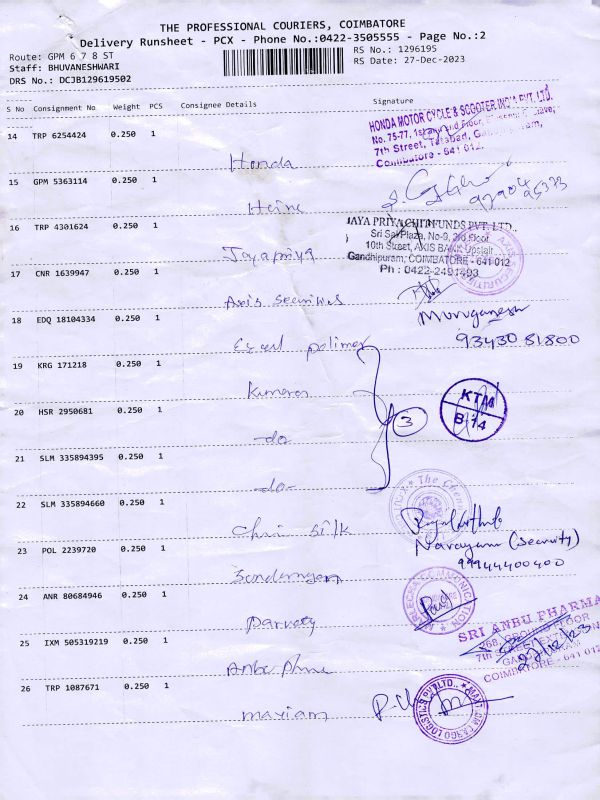 THE PROFESSIONAL COURIERS, COIMBATORE
Delivery Runsheet - PCX - Phone No.:0422-3505555 - Page No.:2
Route: GPM 6 7 8 ST
RS No.: 1296195
Staff: BHUVANESHWARI
RS Date: 27-Dec-2023
DRS No.: DCJB129619502
S No Consignment No Weight PCS Consignee Details Signature
14 TRP 6254424 0.250 1
Honda
HONDA MOTOR CYCLE & SCOOTER INDIA PVT. LTD.
No. 75-77, 1st and Floor,
7th Street, Tatabad,
Coimbatore - 641 012.
15 GPM 5363114 0.250 1
Heine
16 TRP 4301624 0.250 1
Jayapriya
JAYA PRIYA CHITFUNDS PVT. LTD.,
Sri Sai Plaza, No-9, 3rd Floor
10th Street, AXIS BANK Upstair
Gandhipuram, COIMBATORE - 641 012
Ph : 0422-2491493
17 CNR 1639947 0.250 1
Axis Securities
18 EDQ 18104334 0.250 1
Excel polimer
Muruganesh
93430 81800
19 KRG 171218 0.250 1
Kumaran
20 HSR 2950681 0.250 1
-do-
3
KTM
B 14
21 SLM 335894395 0.250 1
-do-
22 SLM 335894660 0.250 1
Chen Silk
The Chen
23 POL 2239720 0.250 1
Narayanan (Security)
99944400400
24 ANR 80684946 0.250 1
Parvaty
25 IXM 505319219 0.250 1
Anbu Phar
SRI ANBU PHARMA
GROUND FLOOR
7th STREET EXTENSION
COIMBATORE - 641 012
27/12/23
26 TRP 1087671 0.250 1
mariam